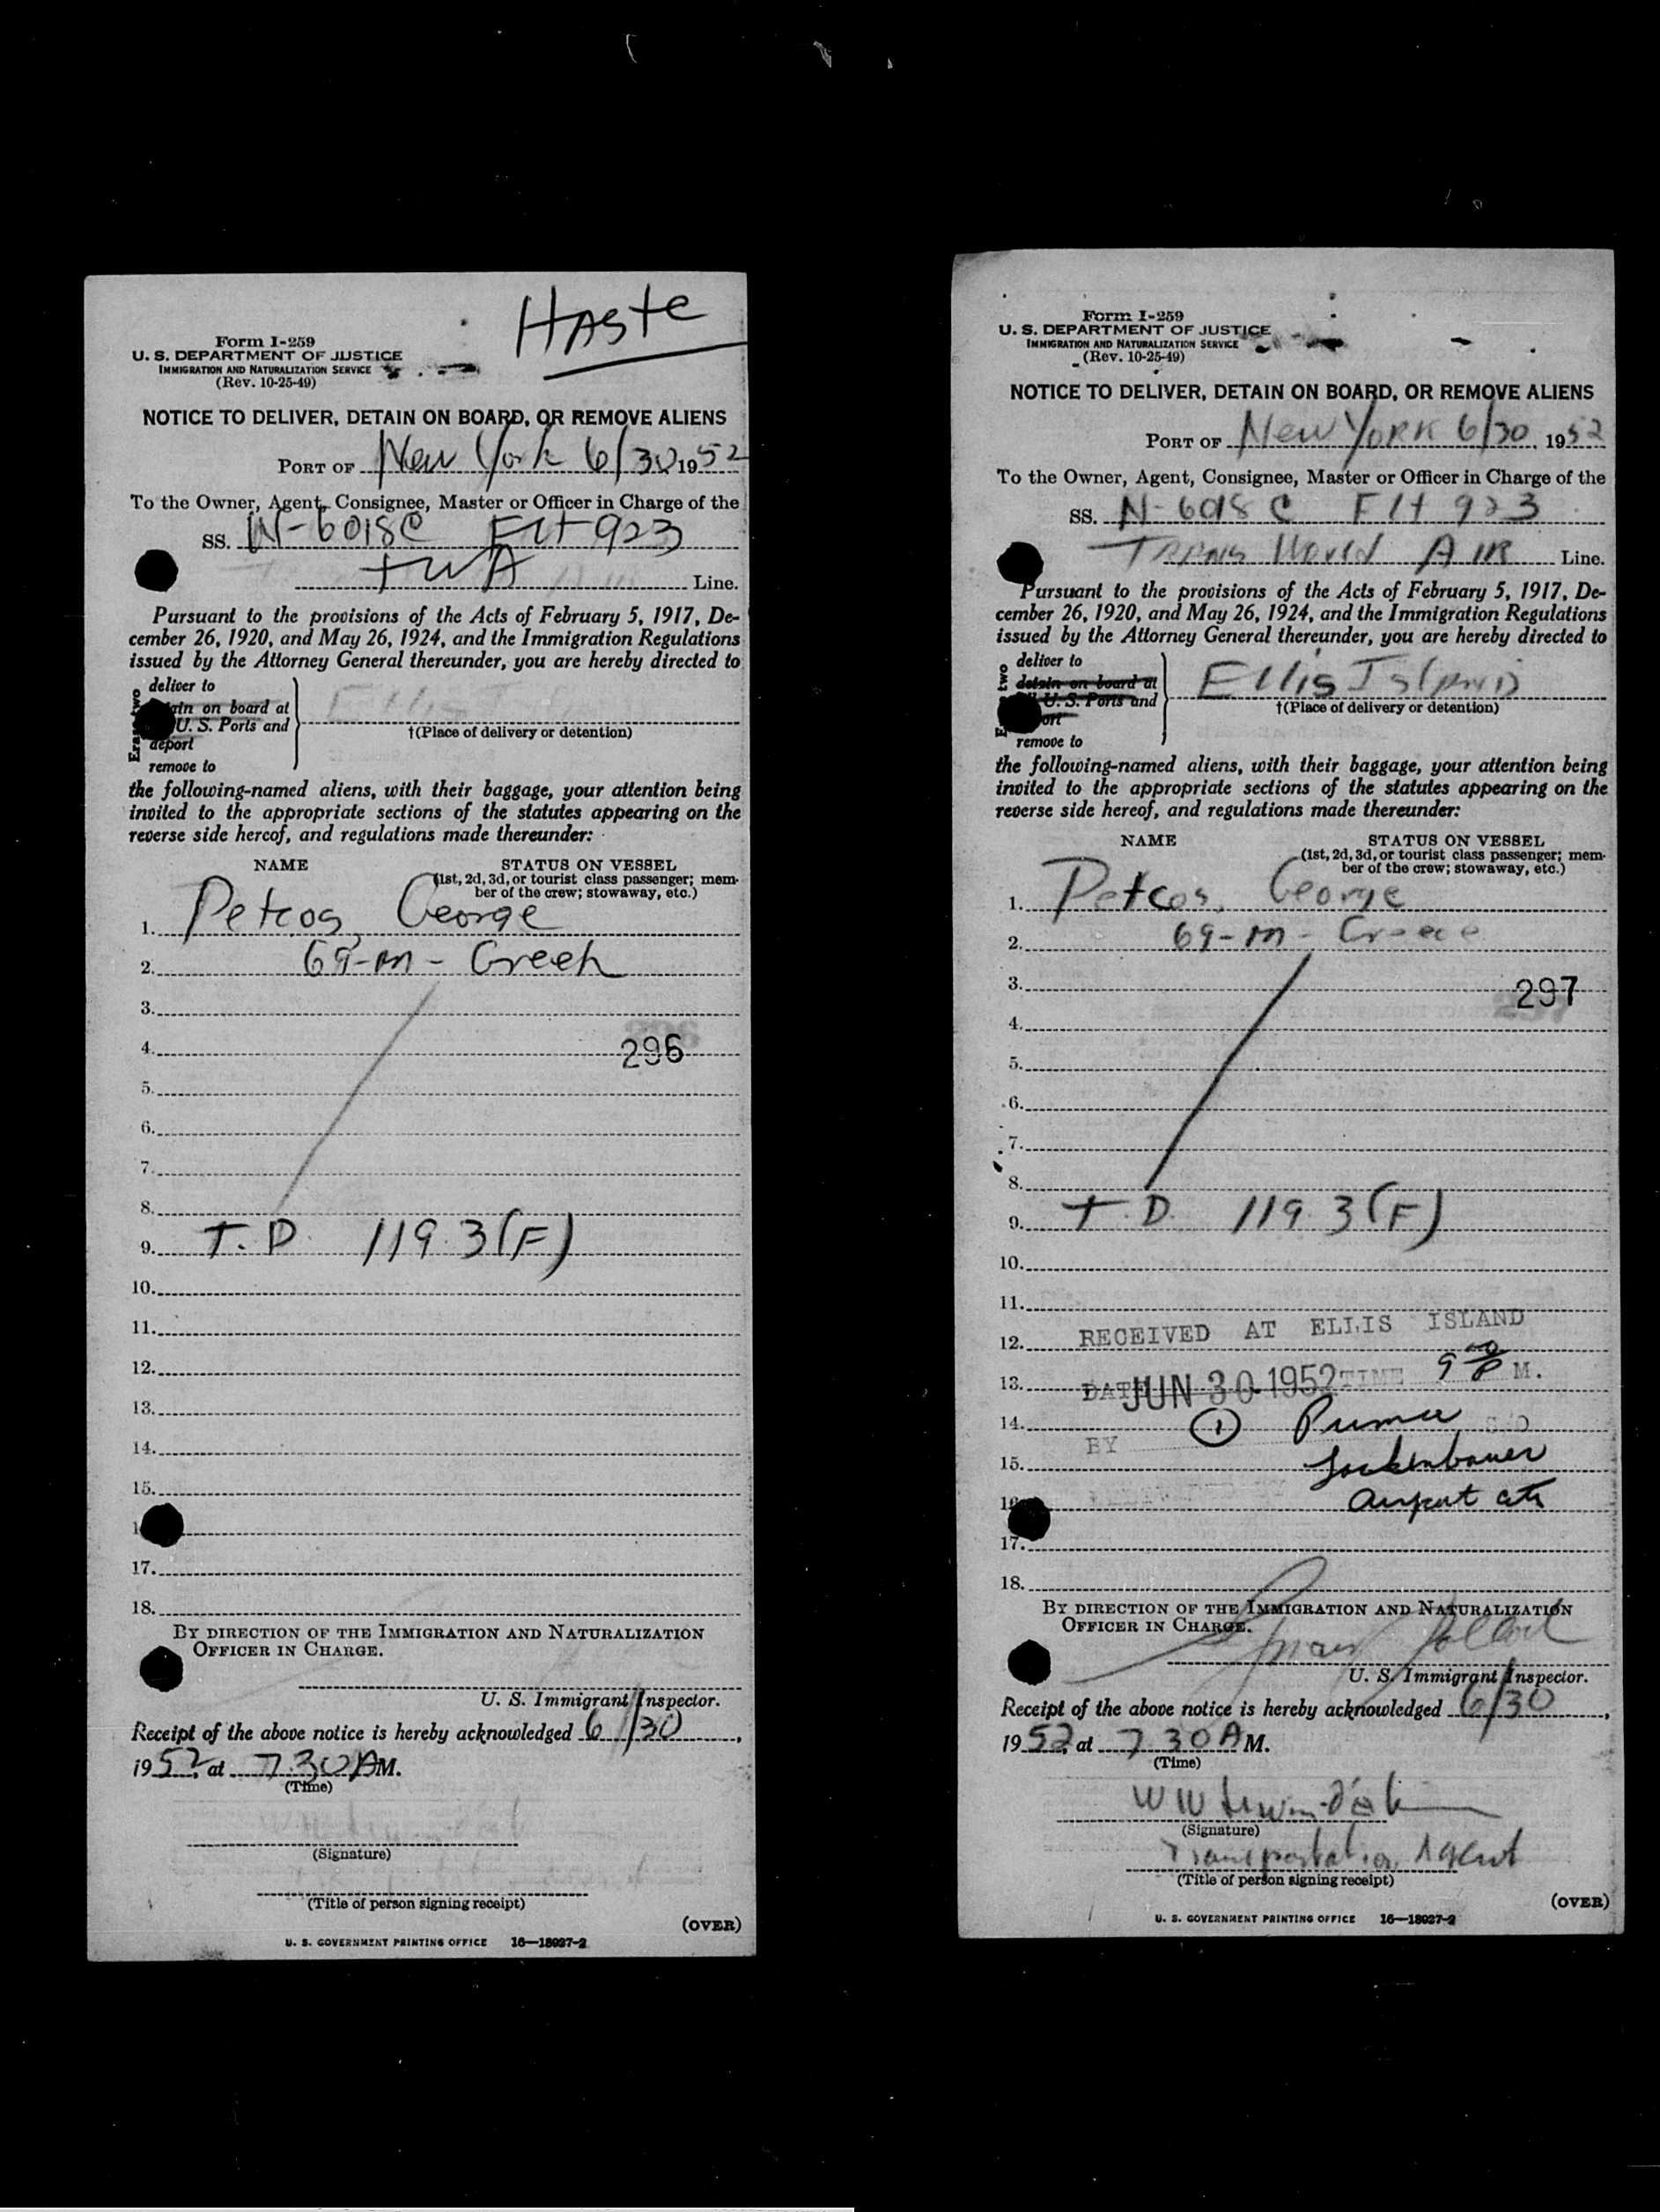 HASte
Form I-259
U. S. DEPARTMENT OF JUSTICE
IMMIGRATION AND NATURALIZATION SERVICE
(Rev. 10-25-49)
NOTICE TO DELIVER, DETAIN ON BOARD, OR REMOVE ALIENS
PORT OF New York 6/30 1952
To the Owner, Agent, Consignee, Master or Officer in Charge of the
SS. N-6018C Flt 923
TWA Line.
Pursuant to the provisions of the Acts of February 5, 1917, De-
cember 26, 1920, and May 26, 1924, and the Immigration Regulations
issued by the Attorney General thereunder, you are hereby directed to
deliver to
on board at
U. S. Ports and
deport
remove to
Ellis
†(Place of delivery or detention)
the following-named aliens, with their baggage, your attention being
invited to the appropriate sections of the statutes appearing on the
reverse side hereof, and regulations made thereunder:
NAME STATUS ON VESSEL
(1st, 2d, 3d, or tourist class passenger; mem-
ber of the crew; stowaway, etc.)
1. Petcos, George
2. 69-m- Greek
3.
4. 296
5.
6.
7.
8.
9. T. D. 119.3(F)
10.
11.
12.
13.
14.
15.
17.
18.
BY DIRECTION OF THE IMMIGRATION AND NATURALIZATION
OFFICER IN CHARGE.
U. S. Immigrant Inspector.
Receipt of the above notice is hereby acknowledged 6/30,
1952, at 7.30 AM.
(Time)
(Signature)
(Title of person signing receipt)
(OVER)
U. S. GOVERNMENT PRINTING OFFICE 16—18927-2
Form I-259
U. S. DEPARTMENT OF JUSTICE
IMMIGRATION AND NATURALIZATION SERVICE
(Rev. 10-25-49)
NOTICE TO DELIVER, DETAIN ON BOARD, OR REMOVE ALIENS
PORT OF New YORK 6/30, 1952
To the Owner, Agent, Consignee, Master or Officer in Charge of the
SS. N-6018C Flt 923
Trans World Air Line.
Pursuant to the provisions of the Acts of February 5, 1917, De-
cember 26, 1920, and May 26, 1924, and the Immigration Regulations
issued by the Attorney General thereunder, you are hereby directed to
deliver to
detain on board at
U. S. Ports and
remove to
Ellis Island
†(Place of delivery or detention)
the following-named aliens, with their baggage, your attention being
invited to the appropriate sections of the statutes appearing on the
reverse side hereof, and regulations made thereunder:
NAME STATUS ON VESSEL
(1st, 2d, 3d, or tourist class passenger; mem-
ber of the crew; stowaway, etc.)
1. Petcos, George
2. 69-m- Greece
3. 297
4.
5.
6.
7.
8.
9. T.D. 119 3(F)
10.
11.
12. RECEIVED AT ELLIS ISLAND
13. DATE JUN 30 1952 TIME 9 M.
14. BY 1
15.
17.
18.
BY DIRECTION OF THE IMMIGRATION AND NATURALIZATION
OFFICER IN CHARGE.
U. S. Immigrant Inspector.
Receipt of the above notice is hereby acknowledged 6/30,
1952, at 7.30 AM.
(Time)
(Signature)
Transportation Agent
(Title of person signing receipt)
(OVER)
U. S. GOVERNMENT PRINTING OFFICE 16—18927-2